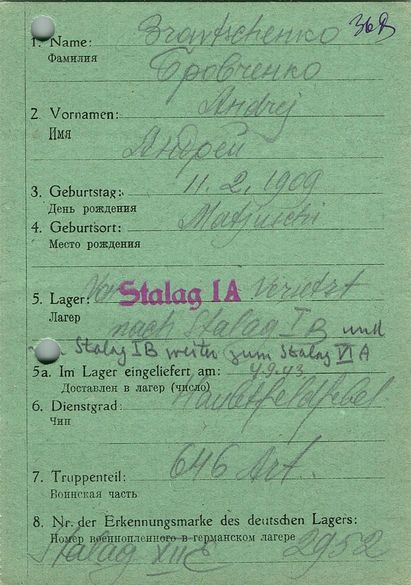 1. Name: Browtschenko 36B
Фамилия
Бровченко
2. Vornamen: Andrej
Имя
Андрей
3. Geburtstag: 11.2.1909
День рождения
4. Geburtsort:
Место рождения
5. Lager: Von Stalag IA Versetzt
Лагер
nach Stalag I B und
Stalag IB weiter zum Stalag VI A
5a. Im Lager eingeliefert am: 4.9.43
Доставлен в лагер (число)
6. Dienstgrad:
Чин
7. Truppenteil: 646 Art.
Воинская часть
8. Nr. der Erkennungsmarke des deutschen Lagers:
Номер военнопленного в германском лагере
Stalag XIII 2952